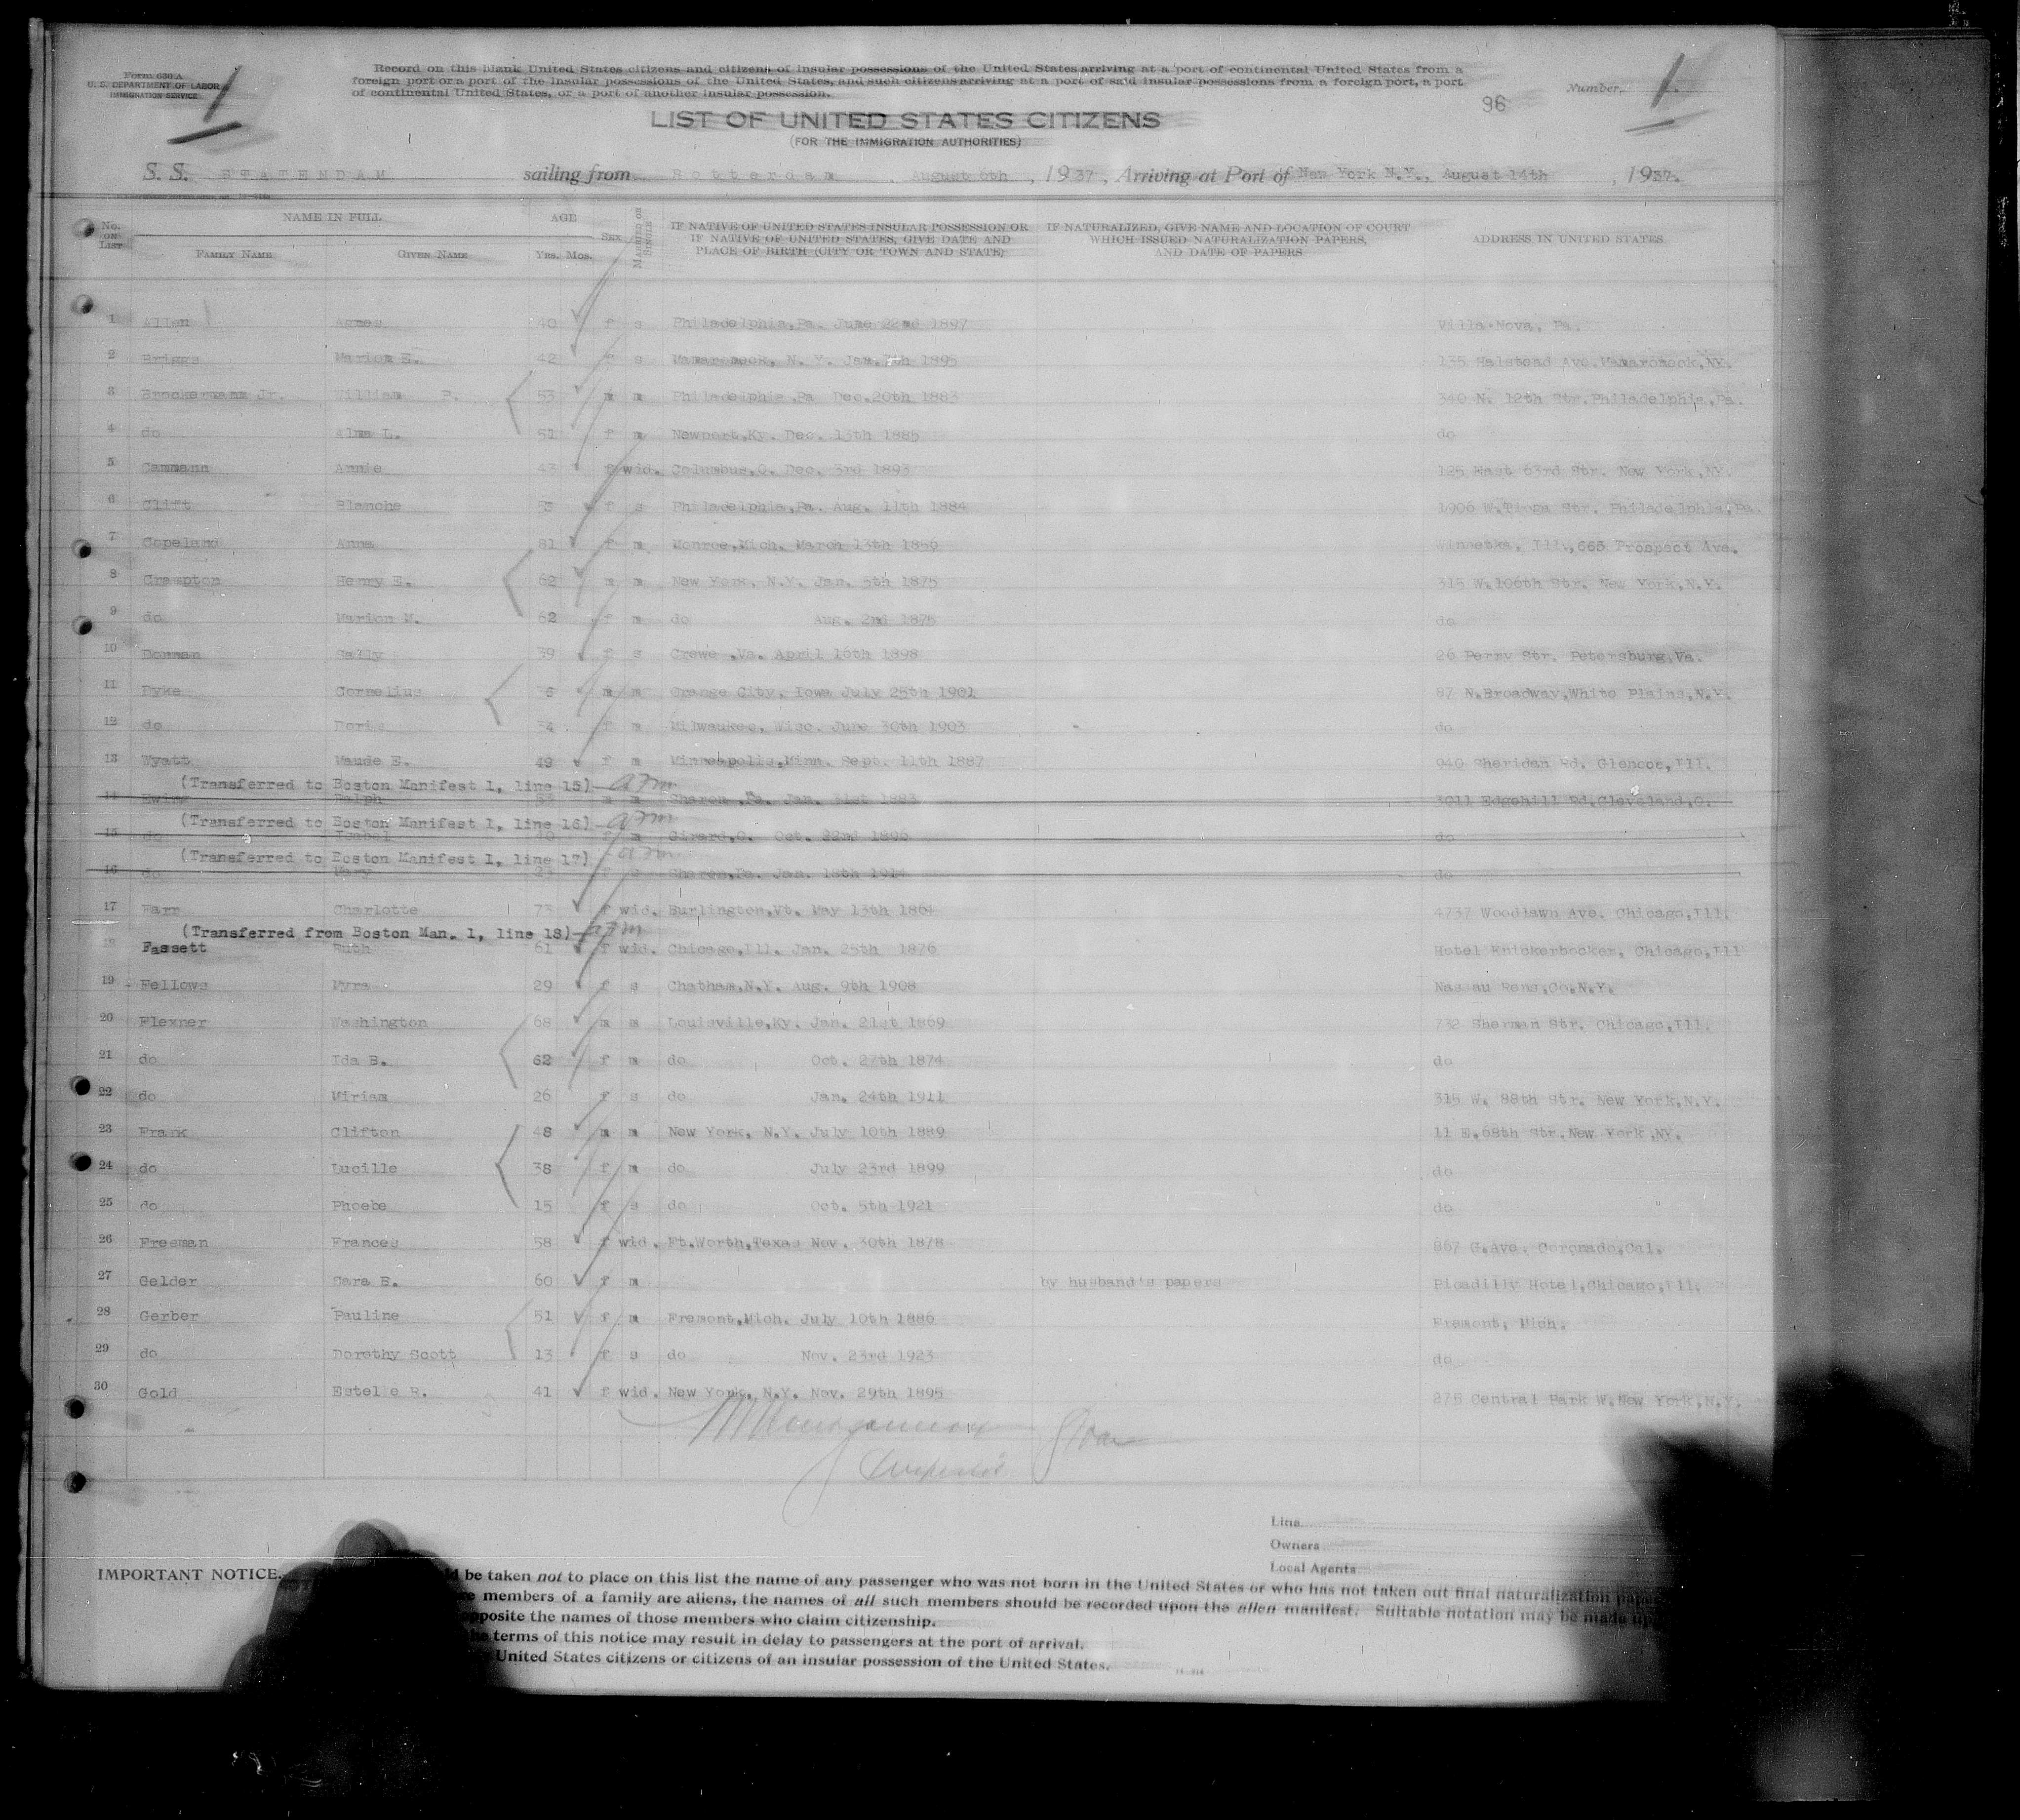 Form 630 A
U. S. DEPARTMENT OF LABOR
IMMIGRATION SERVICE
1
Record on this blank United States citizens and citizens of insular possessions of the United States arriving at a port of continental United States from a
foreign port or a port of the insular possessions of the United States, and such citizens arriving at a port of said insular possessions from a foreign port, a port
of continental United States, or a port of another insular possession.
Number 1
96
LIST OF UNITED STATES CITIZENS
(FOR THE IMMIGRATION AUTHORITIES)
S. S. STATENDAM sailing from Rotterdam, August 6th, 1937, Arriving at Port of New York N.Y., August 14th, 1937.
No. ON LIST
NAME IN FULL
FAMILY NAME GIVEN NAME
AGE
Yrs. Mos.
SEX
MARRIED OR SINGLE
IF NATIVE OF UNITED STATES INSULAR POSSESSION OR
IF NATIVE OF UNITED STATES, GIVE DATE AND
PLACE OF BIRTH (CITY OR TOWN AND STATE)
IF NATURALIZED, GIVE NAME AND LOCATION OF COURT
WHICH ISSUED NATURALIZATION PAPERS,
AND DATE OF PAPERS
ADDRESS IN UNITED STATES
1 Allen Agnes 40 f s Philadelphia,Pa. June 22nd 1897 Villa Nova, Pa.
2 Briggs Marion E. 42 f s Mamaroneck, N. Y. Jan. 7th 1895 135 Halstead Ave.Mamaroneck,NY.
3 Brockermann Jr. William P. 53 m m Philadelphia Pa Dec.20th 1883 340 N. 12th Str.Philadelphia,Pa.
4 do Alma L. 51 f m Newport,Ky. Dec. 13th 1885 do
5 Cammann Annie 43 f wid. Columbus,O. Dec. 3rd 1893 125 East 63rd Str. New York,NY.
6 Clift Blanche 53 f s Philadelphia,Pa. Aug. 11th 1884 1906 W.Tioga Str. Philadelphia,Pa.
7 Copeland Anna 81 f m Monroe,Mich. March 13th 1856 Winnetka, Ill.,665 Prospect Ave.
8 Crampton Henry E. 62 m m New York, N.Y. Jan. 5th 1875 315 W.106th Str. New York,N.Y.
9 do Marion M. 62 f m do Aug. 2nd 1875 do
10 Dorman Sally 39 f s Crewe ,Va. April 16th 1898 26 Perry Str. Petersburg,Va.
11 Dyke Cornelius m m Orange City, Iowa July 25th 1901 87 N.Broadway,White Plains,N.Y.
12 do Doris 34 f m Milwaukee, Wisc. June 30th 1903 do
13 Wyatt Maude E. 49 f m Minneapolis,Minn. Sept. 11th 1887 940 Sheridan Rd. Glencoe,Ill.
(Transferred to Boston Manifest 1, line 15)
14 Ewing Ralph 53 m m Sharon ,Pa. Jan. 31st 1883 3011 Edgehill Rd,Cleveland,O.
(Transferred to Boston Manifest 1, line 16)
15 do Isabel 40 f m Girard,O. Oct. 22nd 1896 do
(Transferred to Boston Manifest 1, line 17)
16 do Mary 23 f s Sharon,Pa. Jan. 18th 1914 do
17 Farr Charlotte 73 f wid. Burlington,Vt. May 13th 1864 4737 Woodlawn Ave. Chicago,Ill.
(Transferred from Boston Man. 1, line 18)
18 Fassett Ruth 61 f wid. Chicago,Ill. Jan. 25th 1876 Hotel Knickerbocker, Chicago,Ill
19 Fellows Myra 29 f s Chatham,N.Y. Aug. 9th 1908 Nassau Rens.Co.N.Y.
20 Flexner Washington 68 m m Louisville,Ky. Jan. 21st 1869 732 Sherman Str. Chicago,Ill.
21 do Ida B. 62 f m do Oct. 27th 1874 do
22 do Miriam 26 f s do Jan. 24th 1911 315 W. 88th Str. New York,N.Y.
23 Frank Clifton 48 m m New York, N.Y. July 10th 1889 11 E.68th Str.New York,NY.
24 do Lucille 38 f m do July 23rd 1899 do
25 do Phoebe 15 f s do Oct. 5th 1921 do
26 Freeman Frances 58 f wid. Ft.Worth,Texas Nov. 30th 1878 867 G.Ave. Coronado,Cal.
27 Gelder Sara B. 60 f m by husband's papers Picadilly Hotel,Chicago,Ill.
28 Gerber Pauline 51 f m Fremont,Mich. July 10th 1886 Fremont, Mich.
29 do Dorothy Scott 13 f s do Nov. 23rd 1923 do
30 Gold Estelle R. 41 f wid. New York, N.Y. Nov. 29th 1895 275 Central Park W.New York,N.Y.
Line
Owners
Local Agents
IMPORTANT NOTICE. be taken not to place on this list the name of any passenger who was not born in the United States or who has not taken out final naturalization
members of a family are aliens, the names of all such members should be recorded upon the alien manifest. Suitable notation may be made
opposite the names of those members who claim citizenship.
terms of this notice may result in delay to passengers at the port of arrival.
United States citizens or citizens of an insular possession of the United States.